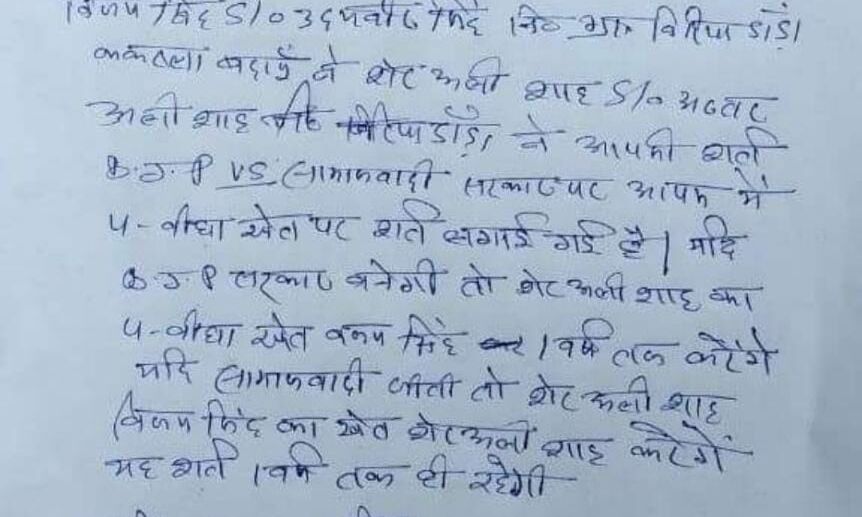 विजय सिंह S/o उदयवीर सिंह नि० ग्राम विरिया डांडा
ककराला बदायूँ ने शेर अली शाह S/o अख्तर
अली शाह नि० विरिया डांडा ने आपकी शर्त
B.J.P VS समाजवादी सरकार पर आपस में
4 - बीघा खेत पर शर्त लगाई गई है। यदि
B.J.P सरकार बनेगी तो शेर अली शाह का
4 - बीघा खेत विजय सिंह 1 वर्ष तक करेंगे
यदि समाजवादी जीती तो शेर अली शाह
विजय सिंह का खेत शेर अली शाह करेगें
यह शर्त 1 वर्ष तक ही रहेगी